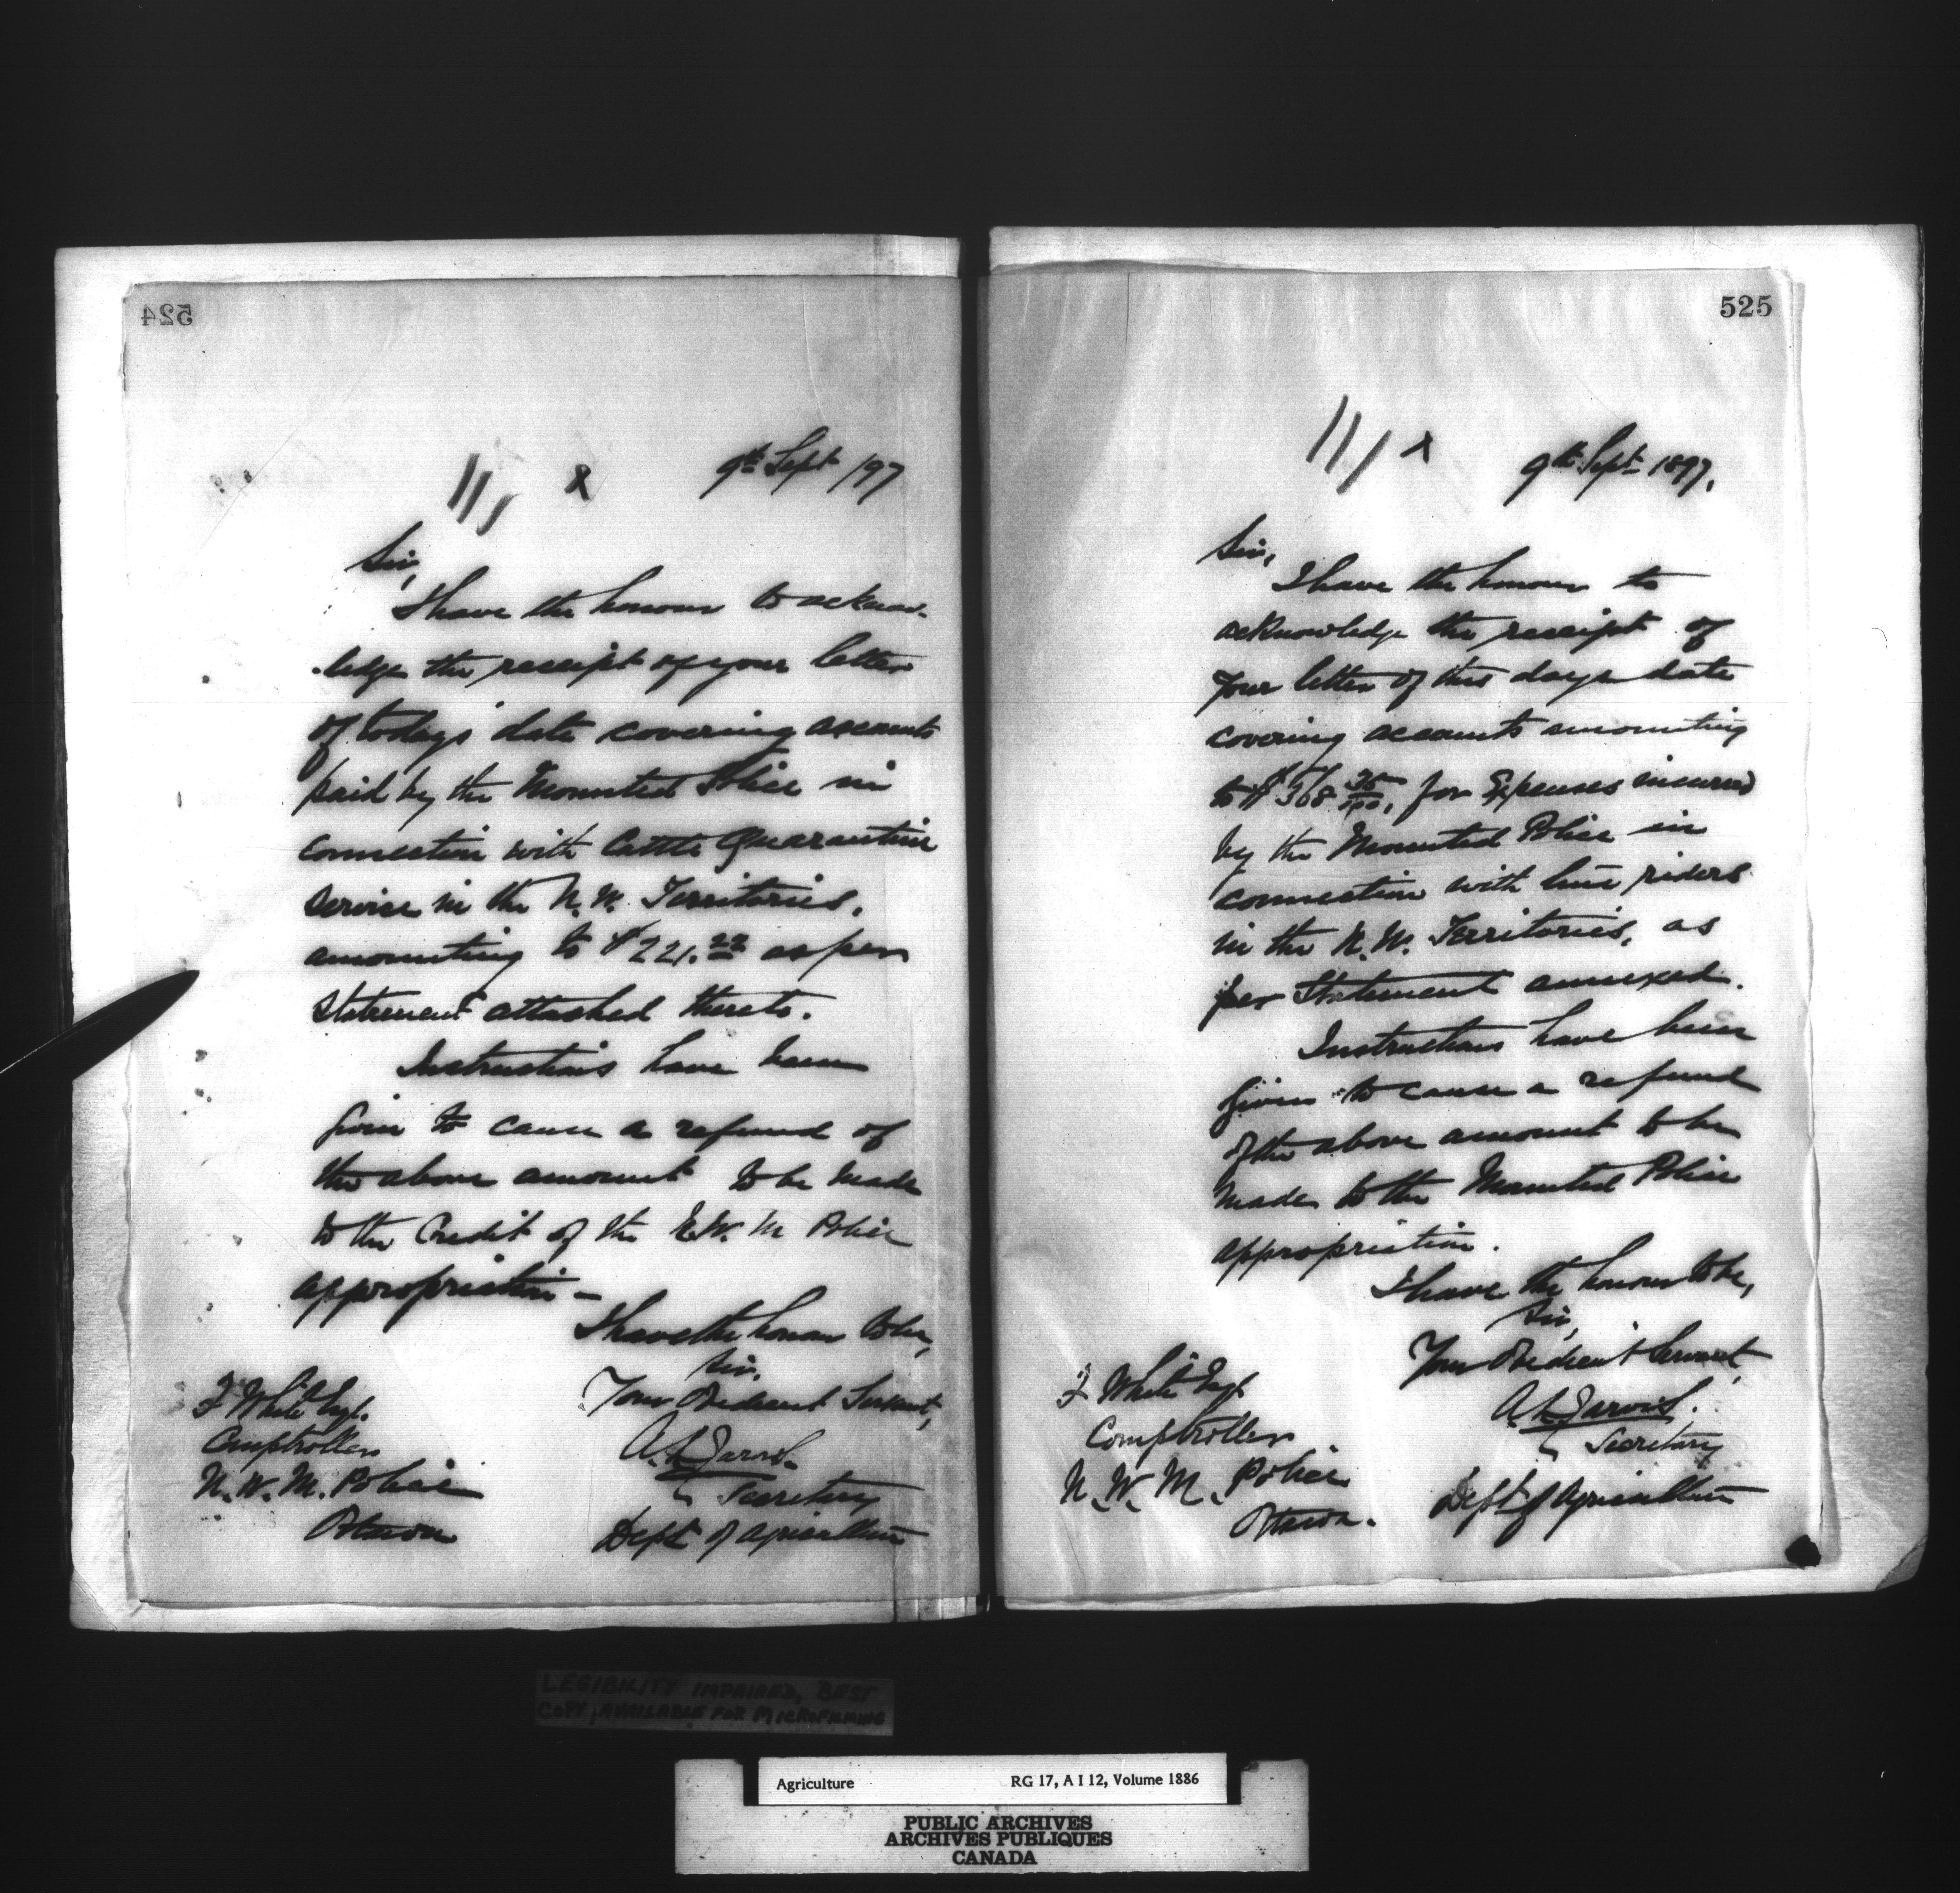 524
9th Sept /97
Sir,
I have the honour to acknow-
-ledge the receipt of your letter
of todays' date covering accounts
paid by the Mounted Police in
connection with Cattle Quarantine
Service in the N. W. Territories,
amounting to $221.22 as per
statement attached thereto.
Instructions have been
given to cause a refund of
the above amount to be made
to the Credit of the N.W. M Police
appropriation —
I have the honour to be,
Sir,
Your Obedient Servant,
A. L Jarvis
Secretary
Dept of Agriculture
F White Esq.
Comptroller
N. W. M. Police
Ottawa
525
9th Sept 1897.
Sir,
I have the honour to
acknowledge the receipt of
your letter of this days date
covering accounts amounting
to $368 35/100, for Expenses incurred
by the Mounted Police in
connection with line riders
in the N. W. Territories, as
per Statement annexed.
Instructions have been
given to cause a refund
of the above amount to be
made to the Mounted Police
appropriation.
I have the honour to be,
Sir,
Your Obedient Servant,
A L Jarvis.
Secretary
Dept of Agriculture
F White Esq
Comptroller
N. W. M. Police
Ottawa.
LEGIBILITY IMPAIRED, BEST
COPY AVAILABLE FOR MICROFILMING
Agriculture RG 17, A I 12, Volume 1886
PUBLIC ARCHIVES
ARCHIVES PUBLIQUES
CANADA